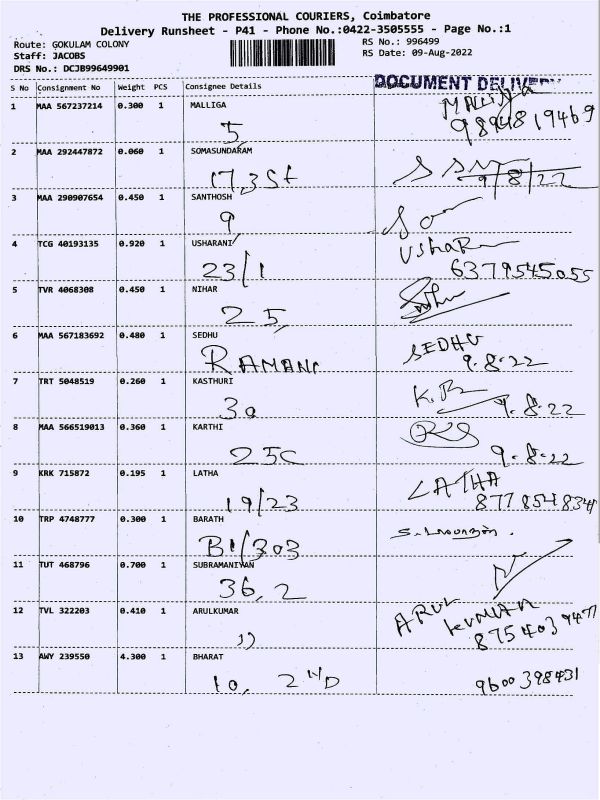 THE PROFESSIONAL COURIERS, Coimbatore
Delivery Runsheet - P41 - Phone No.:0422-3505555 - Page No.:1
Route: GOKULAM COLONY RS No.: 996499
Staff: JACOBS RS Date: 09-Aug-2022
DRS No.: DCJB99649901
DOCUMENT DELIVERY
S No Consignment No Weight PCS Consignee Details
1 MAA 567237214 0.300 1 MALLIGA MALLIGA
5, 9894819469
2 MAA 292447872 0.060 1 SOMASUNDARAM
17, 3 St 9/8/22
3 MAA 290907654 0.450 1 SANTHOSH
9
4 TCG 40193135 0.920 1 USHARANI UshaR
23/1 6379545055
5 TVR 4068308 0.450 1 NIHAR
25,
6 MAA 567183692 0.480 1 SEDHU SEDHU
RAMANI 9.8.22
7 TRT 5048519 0.260 1 KASTHURI
30 9.8.22
8 MAA 566519013 0.360 1 KARTHI
25C 9.8.22
9 KRK 715872 0.195 1 LATHA LATHA
19/23 8778548341
10 TRP 4748777 0.300 1 BARATH
B1/303
11 TUT 468796 0.700 1 SUBRAMANIYAN
36, 2
12 TVL 322203 0.410 1 ARULKUMAR ARUL KUMAR
,, 8754039477
13 AWY 239550 4.300 1 BHARAT
10, 2ND 9600398431